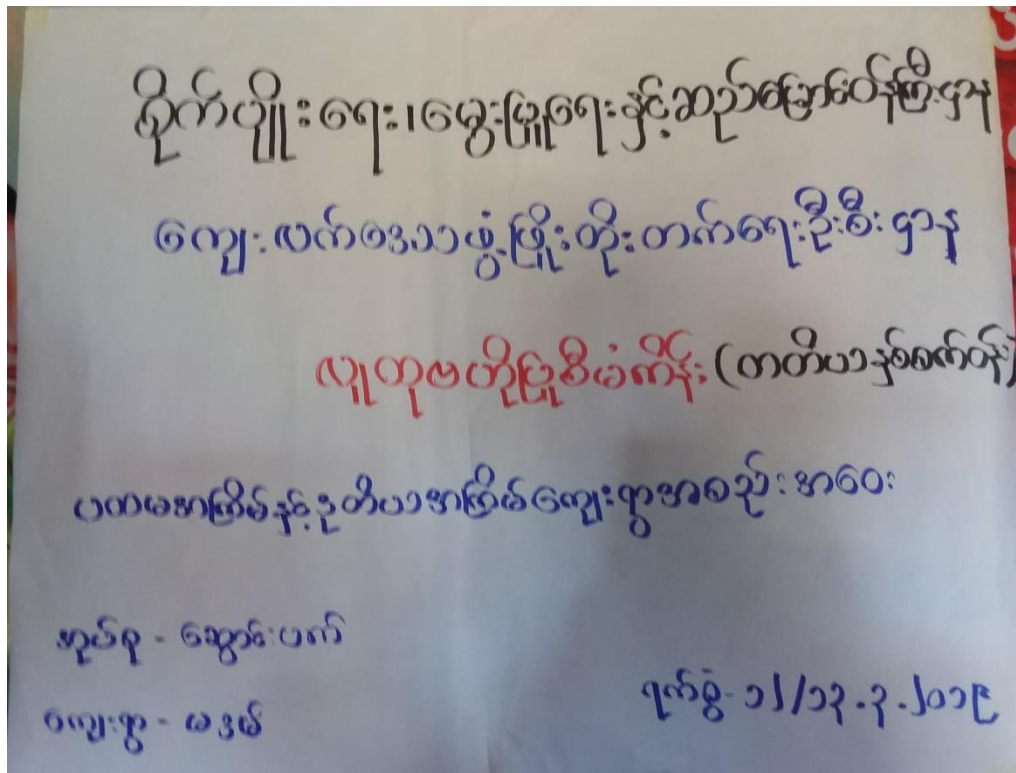 စိုက်ပျိုးရေး၊မွေးမြူရေးနှင့်ဆည်မြောင်းဝန်ကြီးဌာန
ကျေးလက်ဒေသဖွံ့ဖြိုးတိုးတက်ရေးဦးစီးဌာန
လူထုဗဟိုပြုစီမံကိန်း(တတိယနှစ်စက်ဝန်း)
ပထမအကြိမ်နှင့်ဒုတိယအကြိမ်ကျေးရွာအစည်းအဝေး
အုပ်စု - ဆွောင်းပက်
ကျေးရွာ - မဒမ်
ရက်စွဲ - ၁၂/၁၃.၃.၂၀၁၉